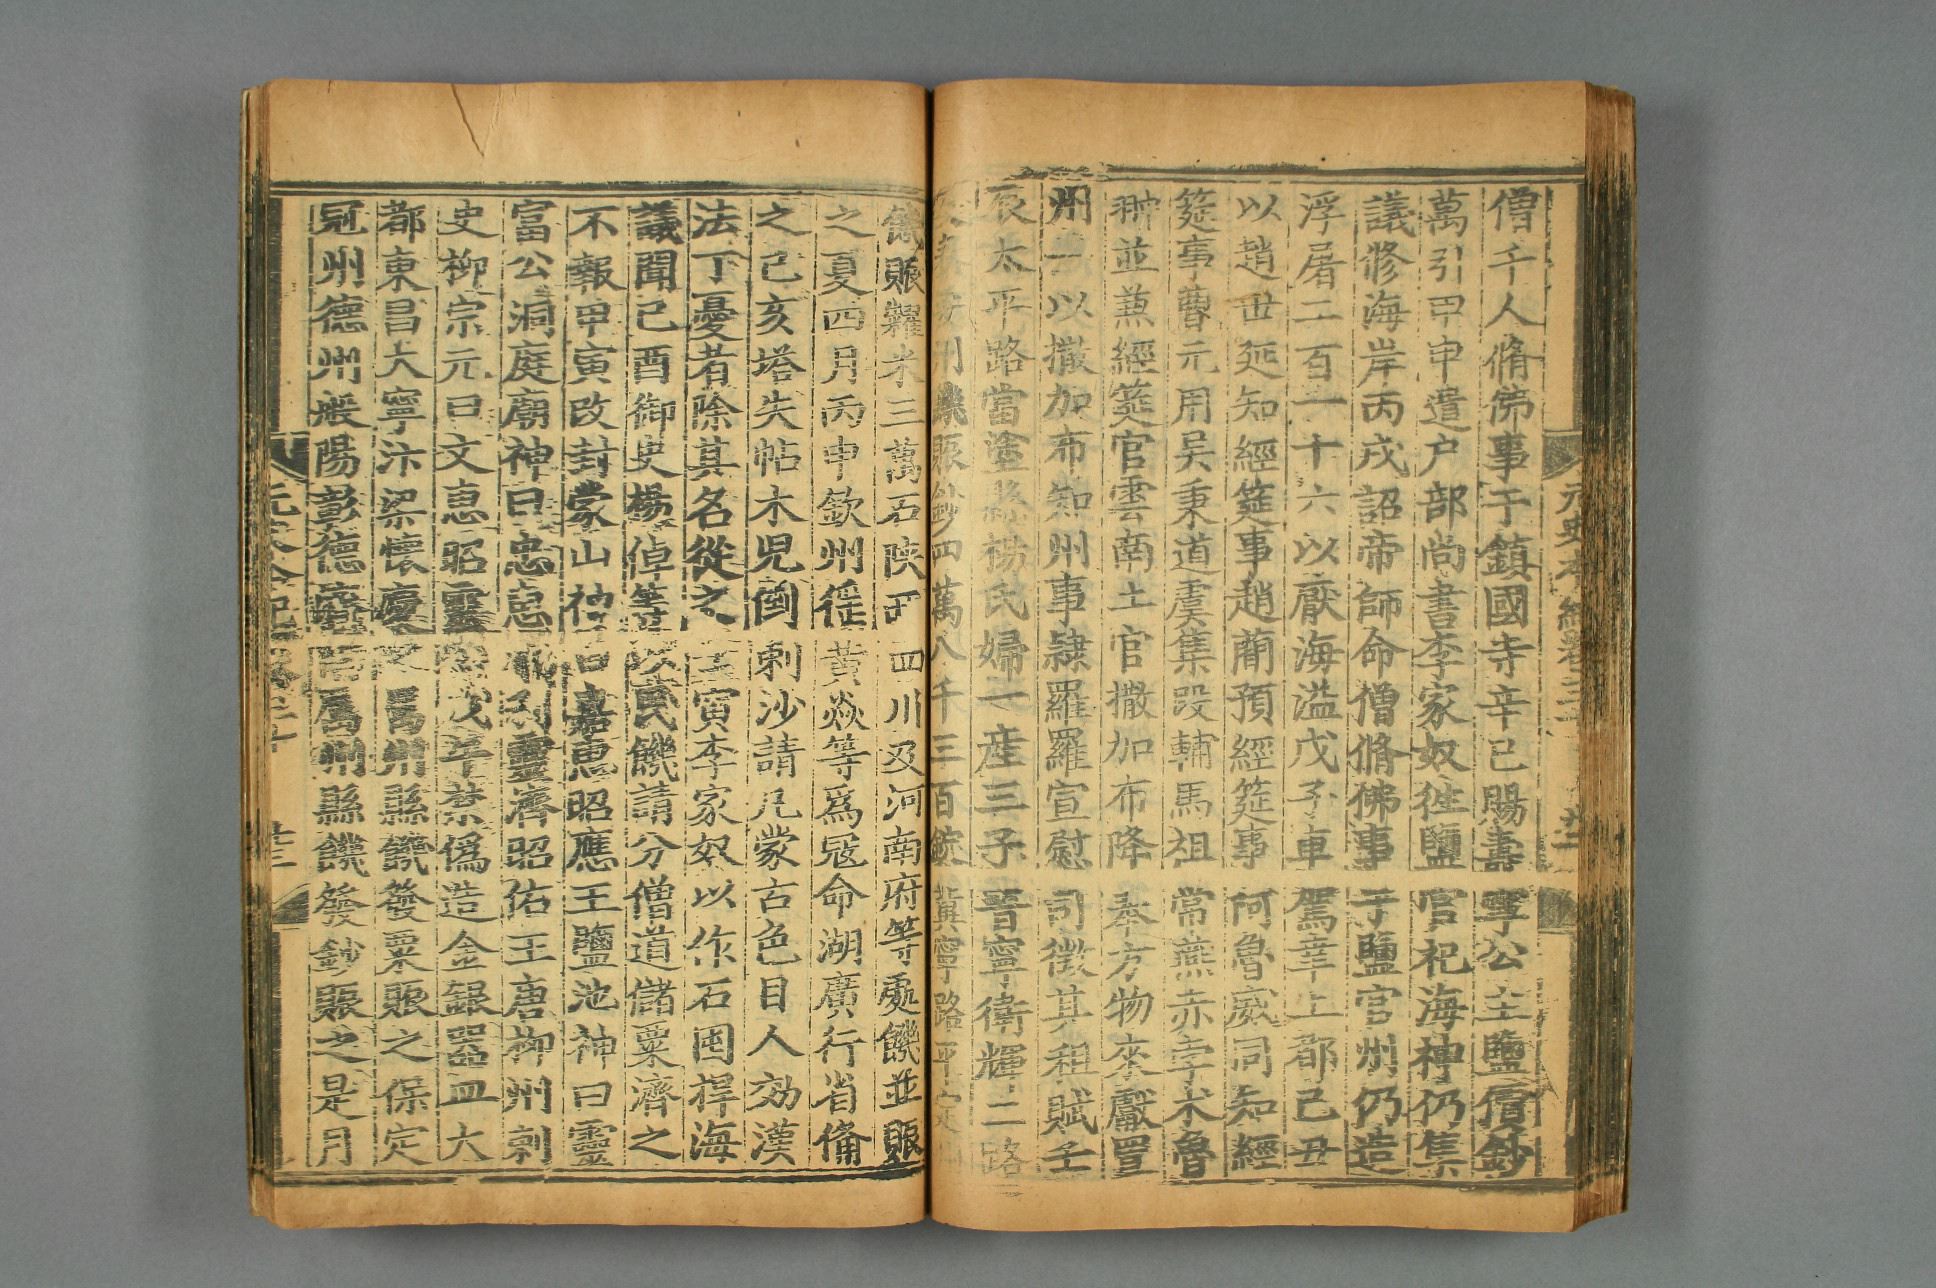 元史本紀卷三十 廿二
僧千人脩佛事于鎮國寺辛巳賜壽寧公主鹽價鈔
萬引甲申遣户部尚書李家奴徃鹽官祀海神仍集
議修海岸丙戌詔帝師命僧脩佛事于鹽官州仍造
浮屠二百一十六以厭海溢戊子車駕幸上都己丑
以趙世延知經筵事趙蕳預經筵事阿魯威同知經
筵事曹元用吳秉道虞集段輔馬祖常燕赤孛术魯
翀並兼經筵官雲南土官撒加布降奉方物來獻置
州一以撒加布知州事隸羅羅宣慰司徵其租賦壬
辰太平路當塗縣楊氏婦一産三子晉寧衛輝二路
安州饑賑鈔四萬八千三百錠冀寧路平定州
饑賑糶米三萬石陝西四川及河南府等處饑並賑
之夏四月丙申欽州徭黃焱等爲寇命湖廣行省僃
之己亥塔失帖木兒倒剌沙請凡蒙古色目人効漢
法丁憂者除其名從之壬寅李家奴以作石囤捍海
議聞己酉御史楊倬等以民饑請分僧道儲粟濟之
不報甲寅改封蒙山神曰嘉惠昭應王鹽池神曰靈
富公洞庭廟神曰忠惠順利靈濟昭佑王唐柳州刺
史柳宗元曰文惠昭靈公戊午禁僞造金銀器皿大
都東昌大寧汴梁懷慶之屬州縣饑發粟賑之保定
冠州德州般陽彰德濟南屬州縣饑發鈔賑之是月
元史本紀卷三十 廿三